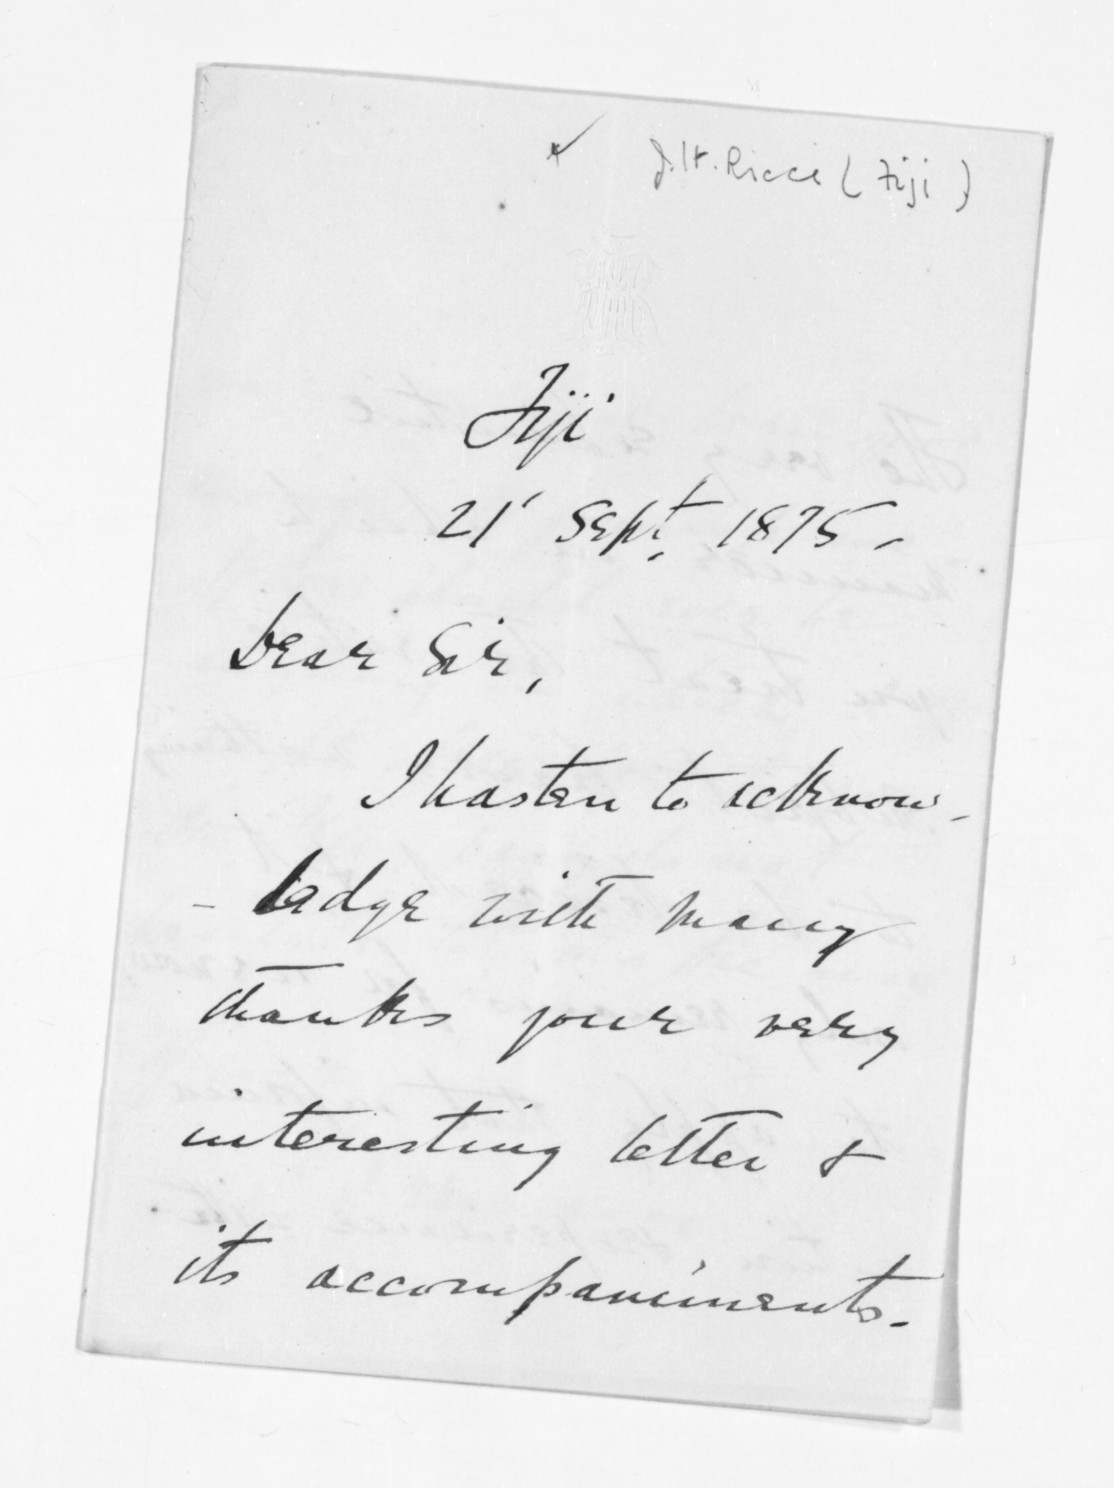 J.H. Ricci (Fiji)
Fiji
21 Sept. 1875.
Dear Sir,
I hasten to acknow-
- ledge with many
thanks your very
interesting letter &
its accompaniments.